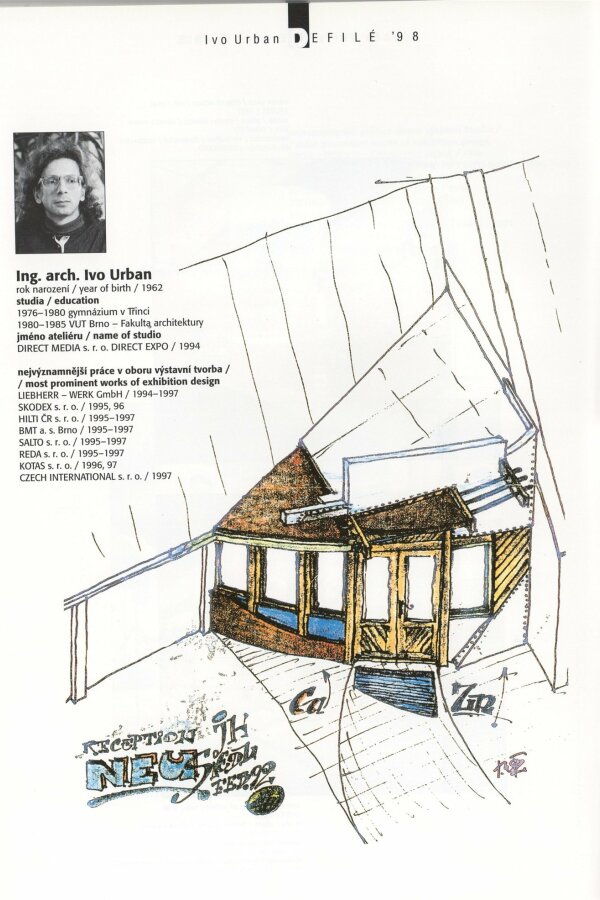 Ivo Urban DEFILÉ '98
Ing. arch. Ivo Urban
rok narození / year of birth / 1962
studia / education
1976–1980 gymnázium v Třinci
1980–1985 VUT Brno – Fakulta architektury
jméno ateliéru / name of studio
DIRECT MEDIA s. r. o. DIRECT EXPO / 1994
nejvýznamnější práce v oboru výstavní tvorba /
/ most prominent works of exhibition design
LIEBHERR – WERK GmbH / 1994–1997
SKODEX s. r. o. / 1995, 96
HILTI ČR s. r. o. / 1995–1997
BMT a. s. Brno / 1995–1997
SALTO s. r. o. / 1995–1997
REDA s. r. o. / 1995–1997
KOTAS s. r. o. / 1996, 97
CZECH INTERNATIONAL s. r. o. / 1997
Zn
RECEPTION
NEU